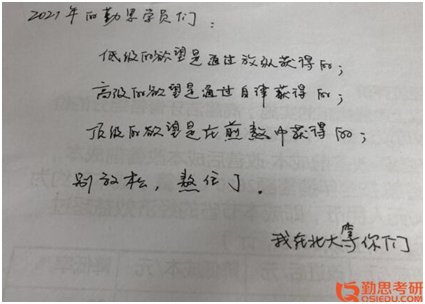 2021年的勤思学员们：
低级的欲望是通过放纵获得的；
高级的欲望是通过自律获得的；
顶级的欲望是在煎熬中获得的；
别放松，熬住了。
我在北大等你们
勤思考研
QSIEDU.COM